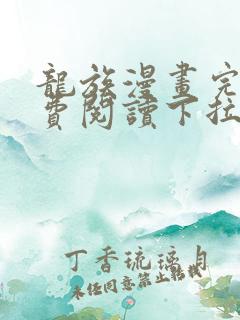 龍族漫畫完
費閱讀下拉
丁香琉璃月
未经同意禁止转载